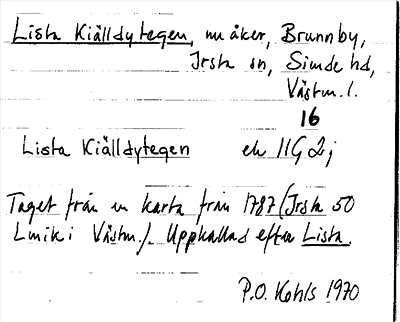 Lista Kiälldytegen, nu åker, Brunnby,
Irsta sn, Siende hd,
Västm. l.
16
Lista Kiälldytegen ek 11G 2j
Taget från en karta från 1787 (Irsta 50
Lmik i Västm.). Uppkallad efter Lista.
P.O. Kohls 1970